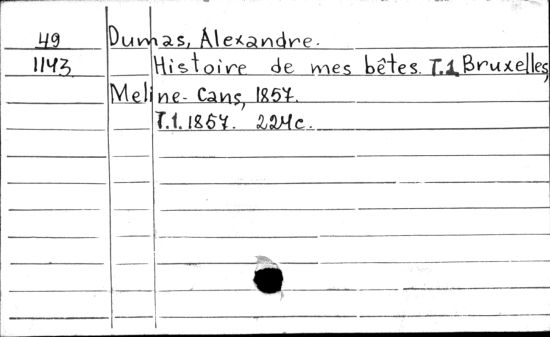 49 Dumas, Alexandre.
1143 Histoire de mes bêtes. T.1 Bruxelles,
Meline-Cans, 1857.
T.1. 1857. 224c.